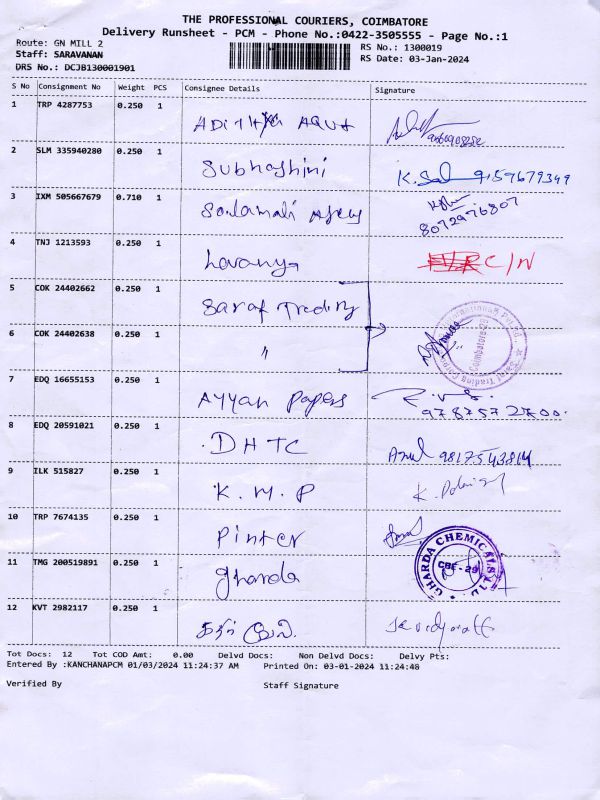 THE PROFESSIONAL COURIERS, COIMBATORE
Delivery Runsheet - PCM - Phone No.:0422-3505555 - Page No.:1
Route: GN MILL 2 RS No.: 1300019
Staff: SARAVANAN RS Date: 03-Jan-2024
DRS No.: DCJB130001901
S No Consignment No Weight PCS Consignee Details Signature
1 TRP 4287753 0.250 1
2 SLM 335940280 0.250 1 Subhashini 9159679349
3 IXM 505667679 0.710 1 8072976807
4 TNJ 1213593 0.250 1 Lavanya C/N
5 COK 24402662 0.250 1 Saraf Trading
6 COK 24402638 0.250 1 "
7 EDQ 16655153 0.250 1 Ayyan Papers 9787572700.
8 EDQ 20591021 0.250 1 DHTC 9817543814
9 ILK 515827 0.250 1 K.M.P
10 TRP 7674135 0.250 1 Pinter
11 TMG 200519891 0.250 1 Gharda GHARDA CHEMICALS LTD. CBE-29
12 KVT 2982117 0.250 1
Tot Docs: 12 Tot COD Amt: 0.00 Delvd Docs: Non Delvd Docs: Delvy Pts:
Entered By :KANCHANAPCM 01/03/2024 11:24:37 AM Printed On: 03-01-2024 11:24:48
Verified By Staff Signature